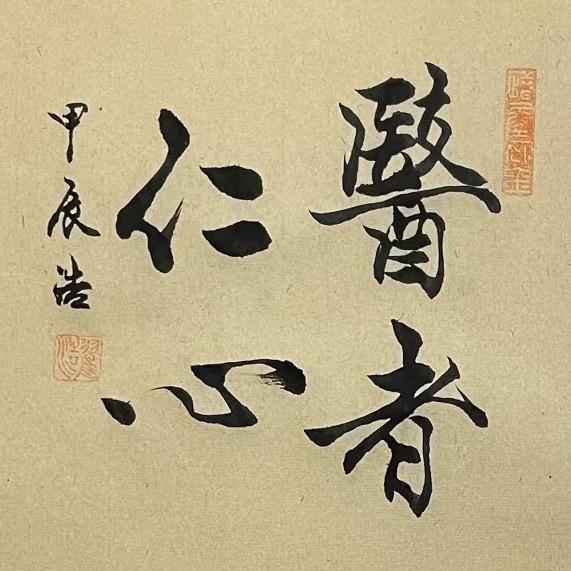 醫者
仁心
甲辰浩